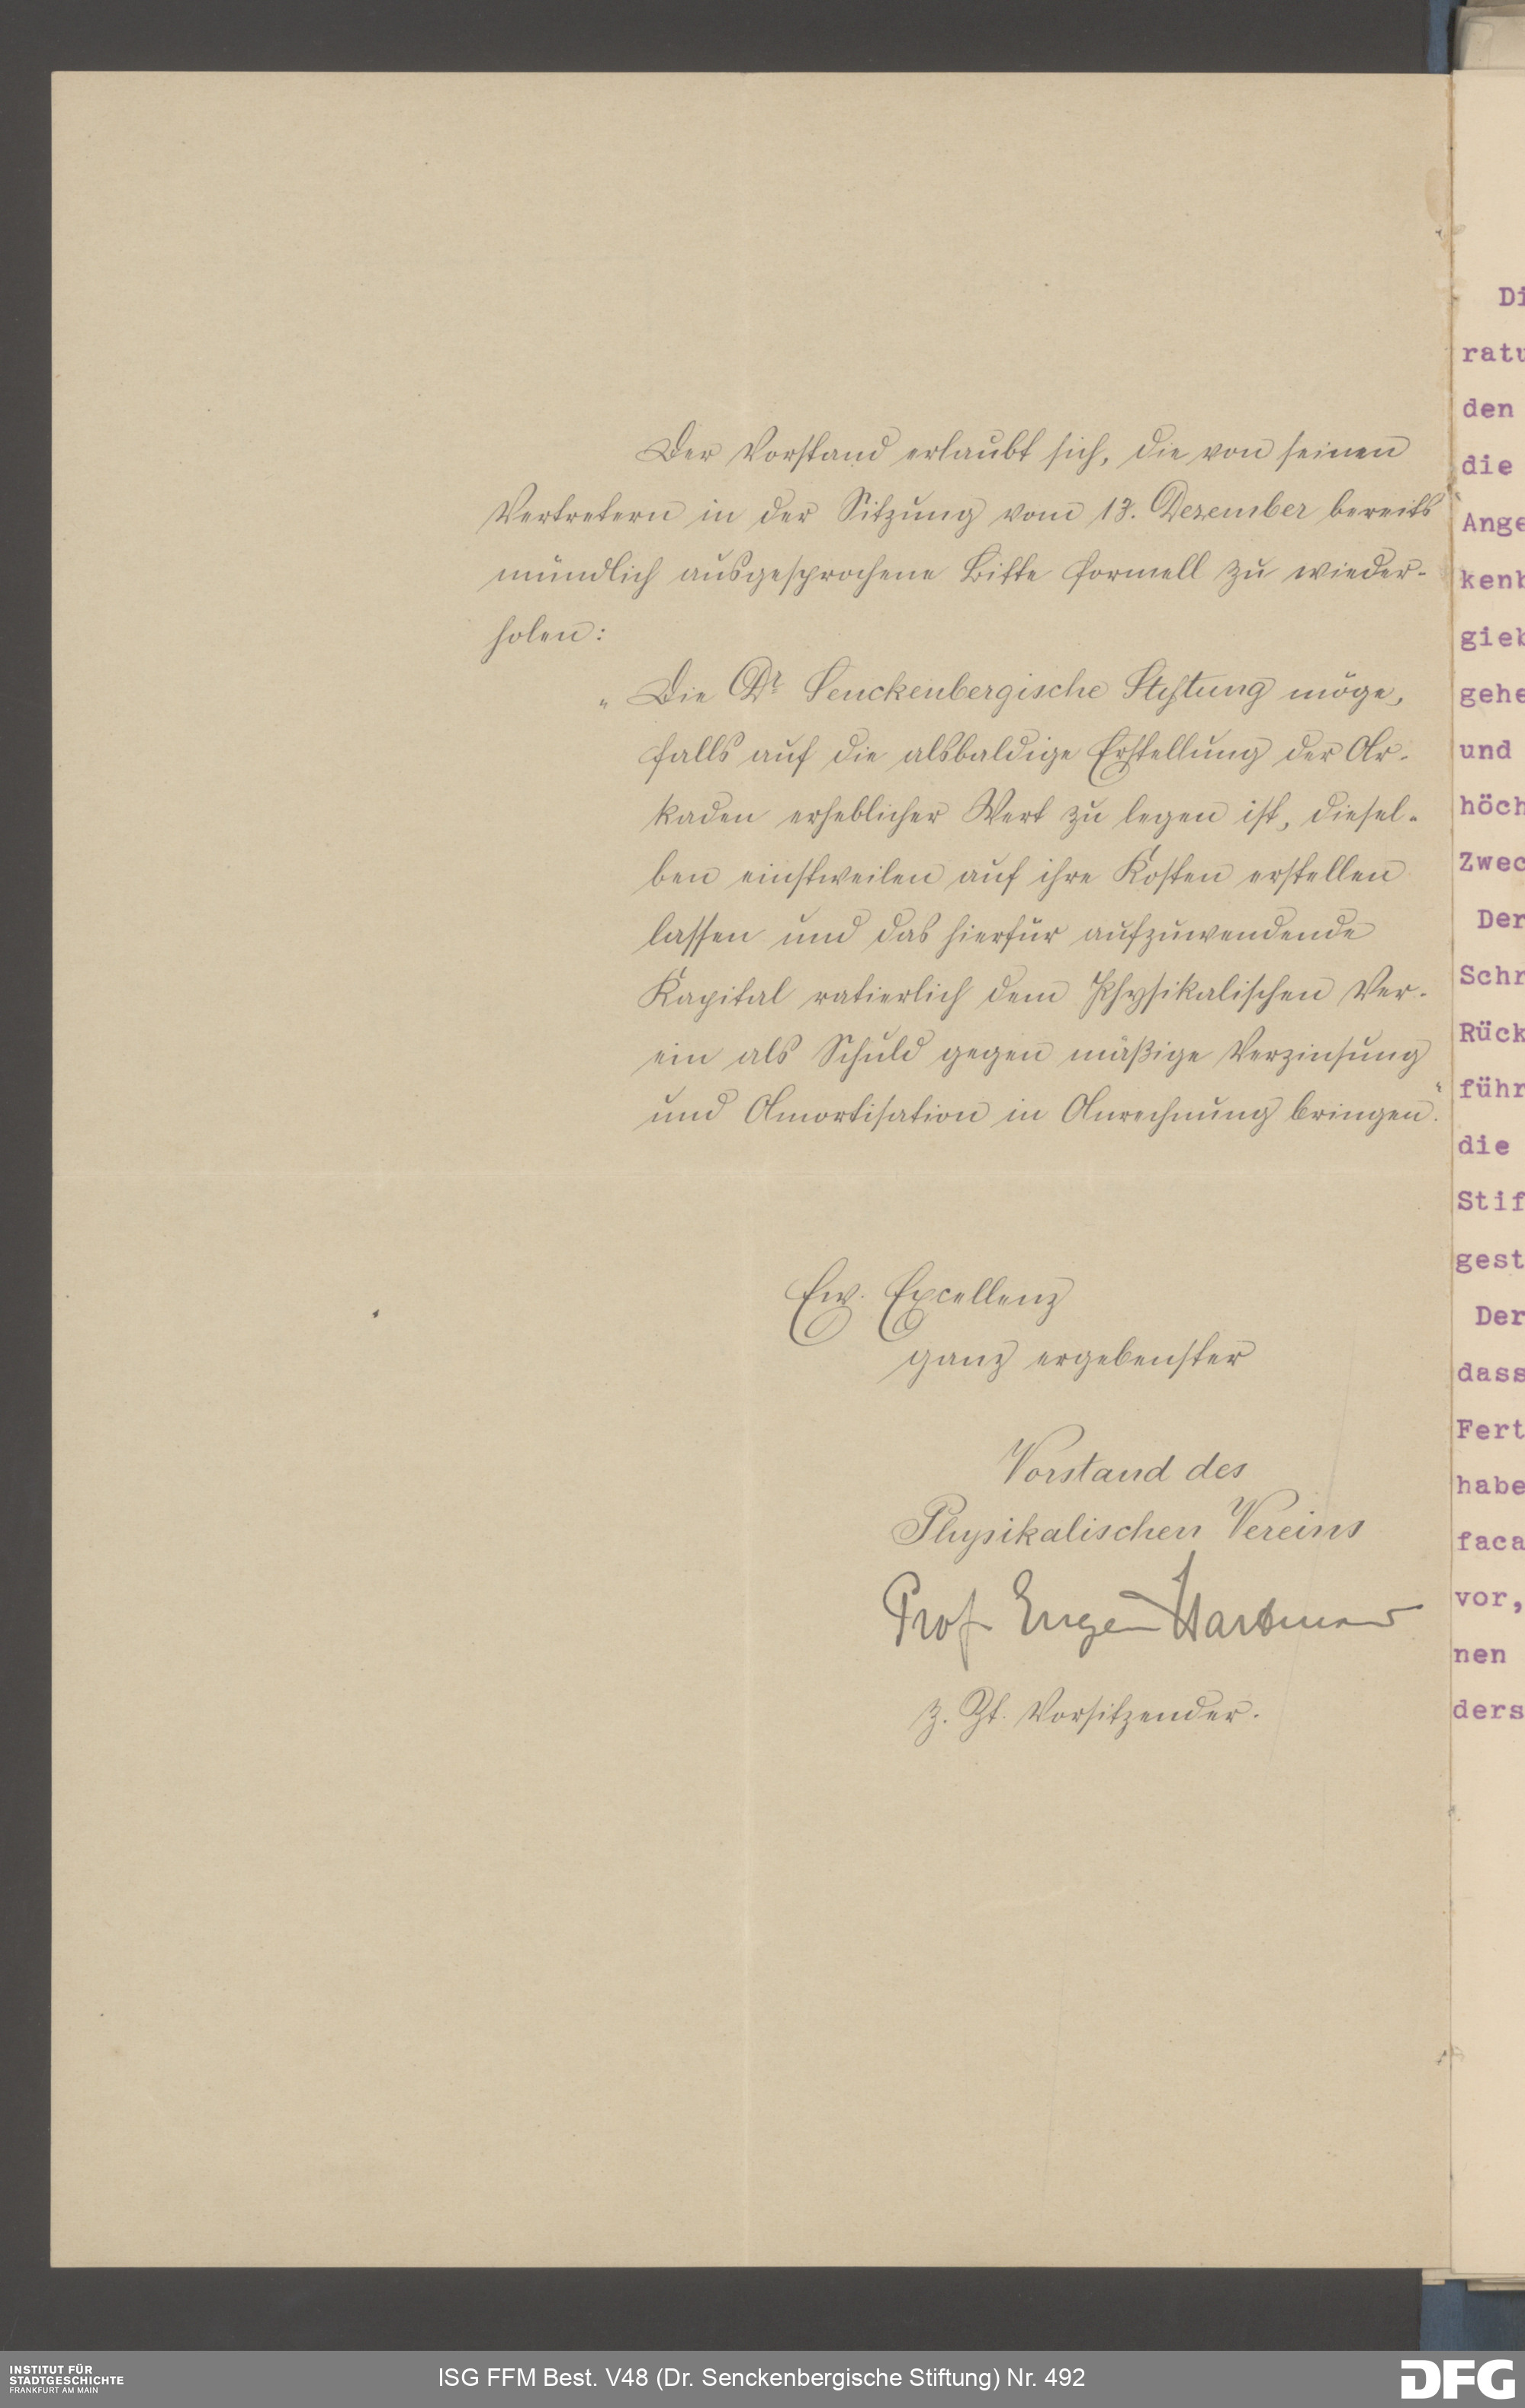 Der Vorstand erlaubt sich, die von seinen
Vertretern in der Sitzung vom 13. Dezember bereits
mündlich ausgesprochene Bitte formell zu wieder-
holen:
„Die Dr Senckenbergische Stiftung möge,
falls auf die alsbaldige Erstellung der Ar-
kaden erheblicher Wert zu legen ist, diesel-
ben einstweilen auf ihre Kosten erstellen
lassen und das hierfür aufzuwendende
Kapital ratierlich dem Physikalischen Ver-
ein als Schuld gegen mäßige Verzinsung
und Amortisation in Anrechnung bringen.“
Ew. Excellenz
ganz ergebenster
Vorstand des
Physikalischen Vereins
Prof Eugen Hartmann
z. Zt. Vorsitzender.
Di
ratu
den
die
Ange
kenb
gieb
gehe
und
höch
Zwec
Der
Schr
Rück
führ
die
Stif
gest
Der
dass
Fert
habe
faca
vor,
nen
ders
INSTITUT FÜR
STADTGESCHICHTE
FRANKFURT AM MAIN
ISG FFM Best. V48 (Dr. Senckenbergische Stiftung) Nr. 492
DFG